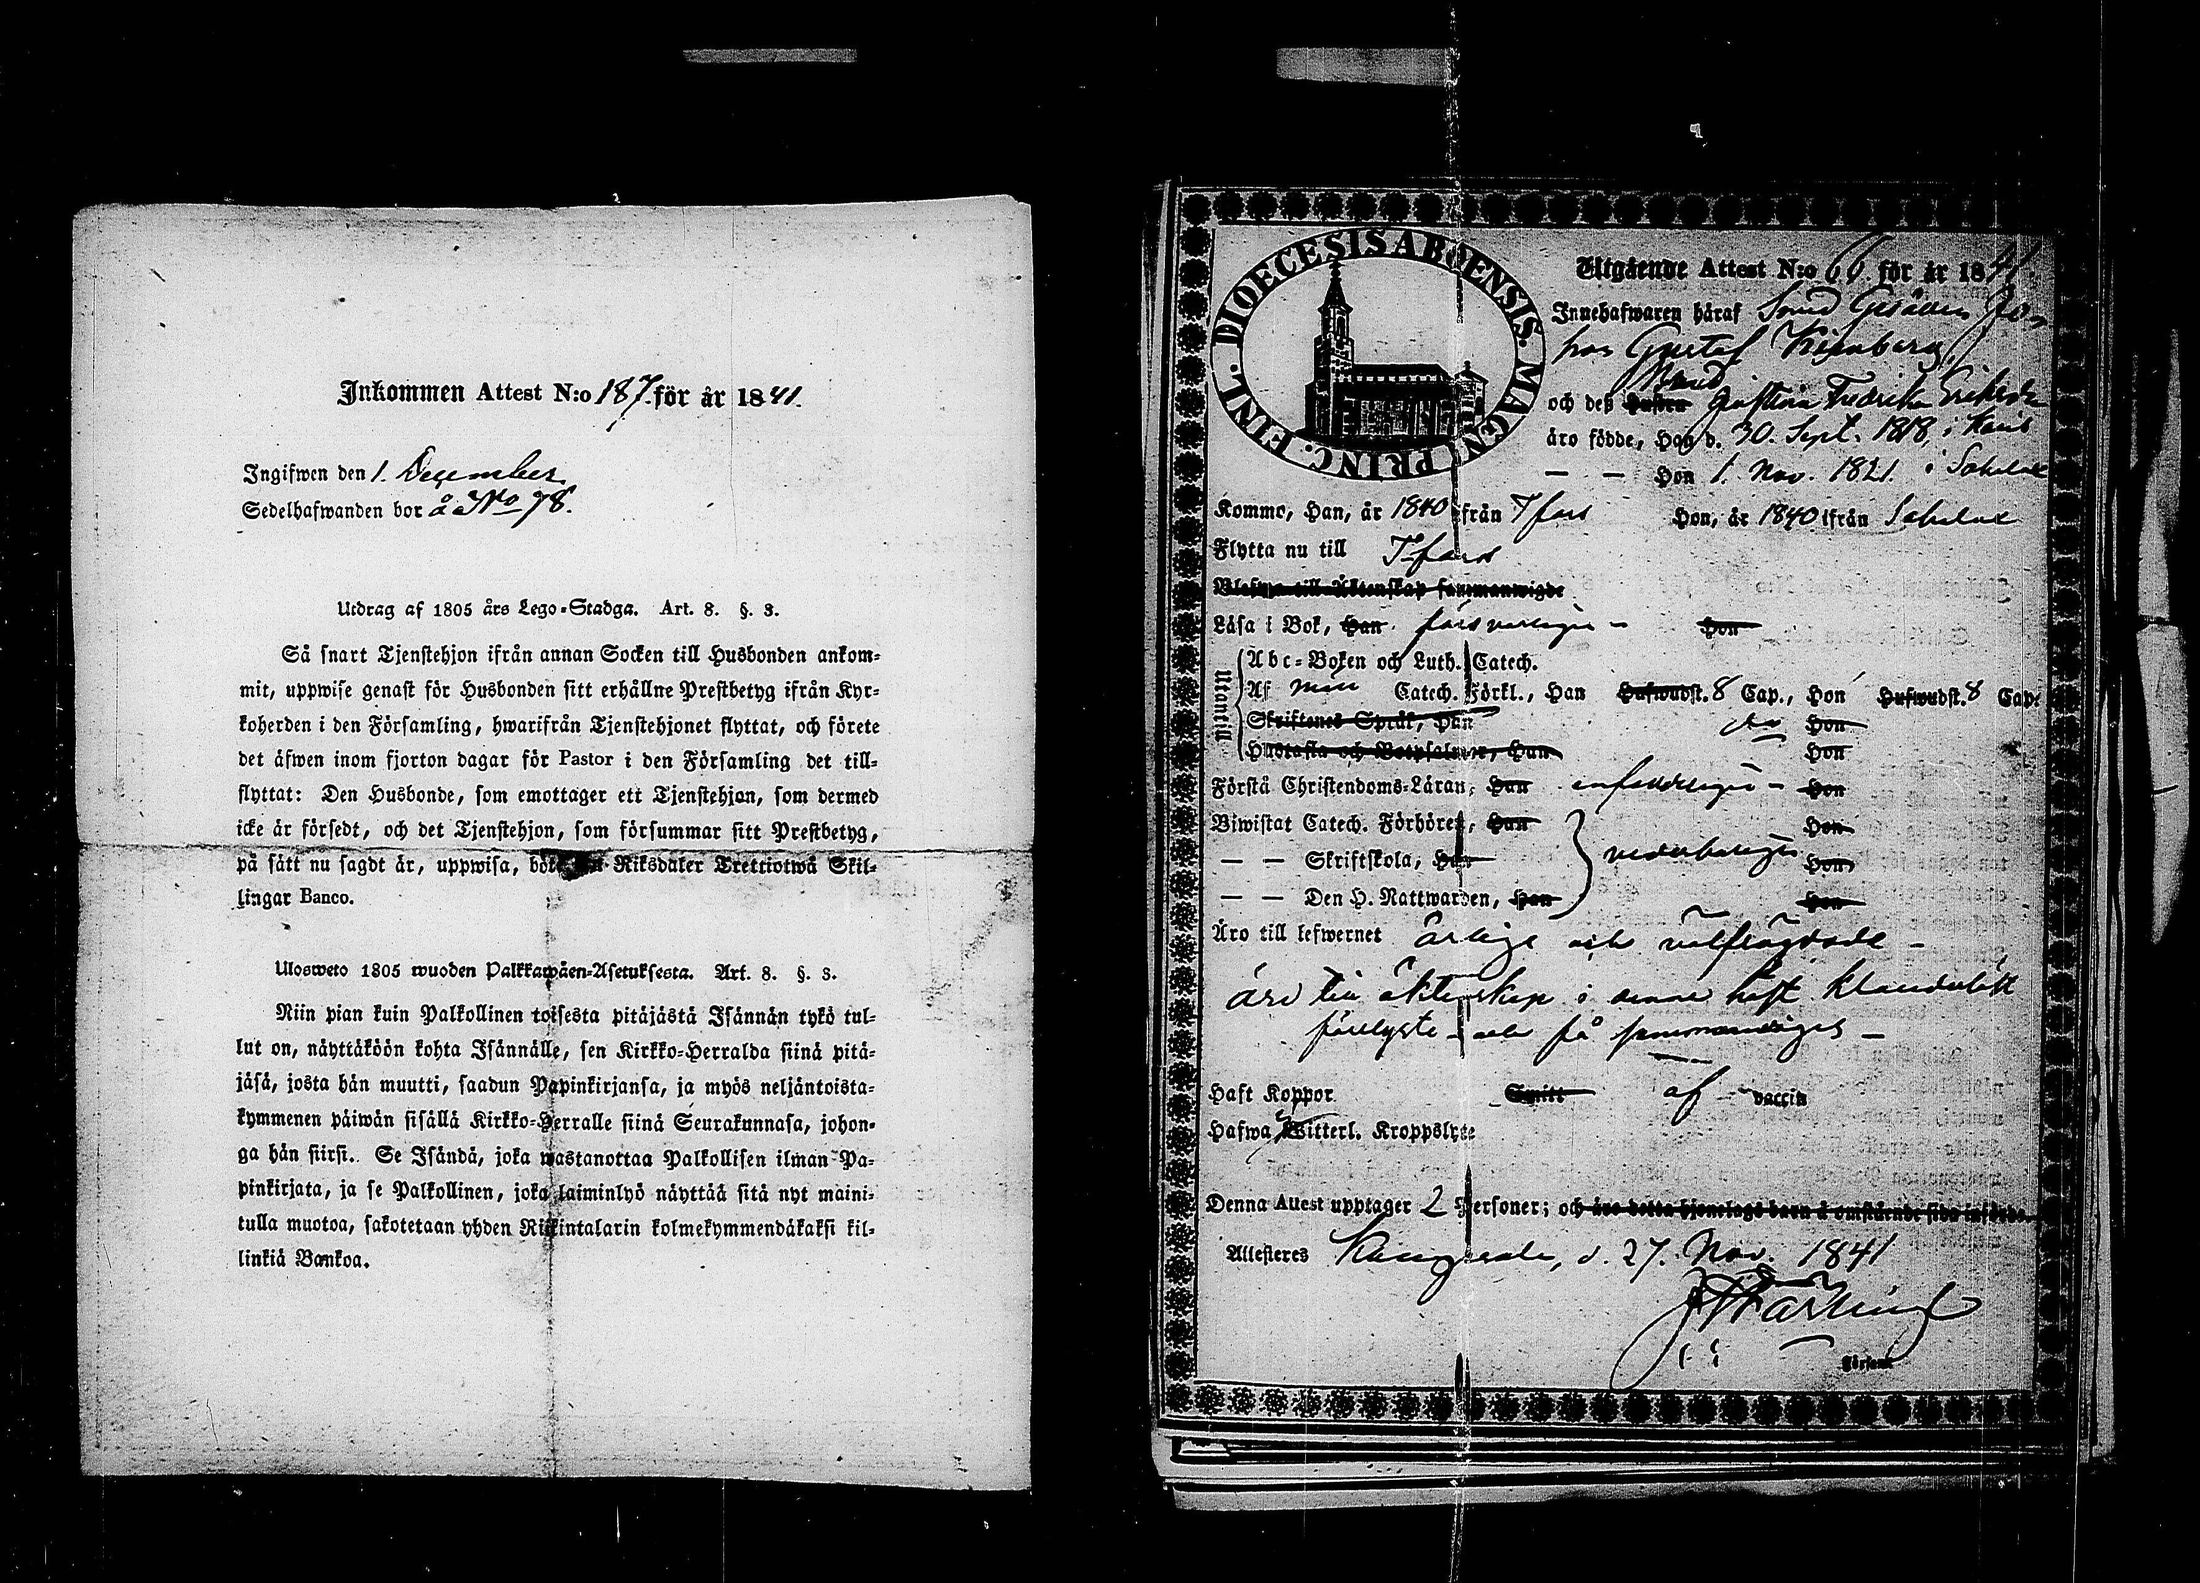 Inkommen Attest N:o 187. för år 1841.
Ingifwen den 1. December
Sedelhafwanden bor å No 78.
Utdrag af 1805 års Lego-Stadga. Art. 8. §. 3.
Så snart Tjenstehjon ifrån annan Socken till Husbonden ankom-
mit, uppwise genast för Husbonden sitt erhållne Prestbetyg ifrån Kyr-
koherden i den Församling, hwarifrån Tjenstehjonet flyttat, och förete
det äfwen inom fjorton dagar för Pastor i den Församling det till-
flyttat: Den Husbonde, som emottager ett Tjenstehjon, som dermed
icke är försedt, och det Tjenstehjon, som försummar sitt Prestbetyg,
på sätt nu sagdt är, uppwisa, böte Riksdaler Trettiotwå Skil-
lingar Banco.
Ulosweto 1805 wuoden Palkkawäen-Asetuksesta. Art. 8. §. 3.
Niin pian kuin Palkollinen toisesta pitäjästä Isännän tykö tul-
lut on, näyttäköön kohta Isännälle, sen Kirkko-Herralda siinä pitä-
jäsä, josta hän muutti, saadun Papinkirjansa, ja myös neljäntoista-
kymmenen päiwän sisällä Kirkko-Herralle siinä Seurakunnasa, johon-
ga hän siirsi. Se Isändä, joka wastanottaa Palkollisen ilman Pa-
pinkirjata, ja se Palkollinen, joka laiminlyö näyttää sitä nyt maini-
tulla muotoa, sakotetaan yhden Riikintalarin kolmekymmendäkaksi kil-
linkiä Bankoa.
DIOECESIS ABOENSIS. MAGN PRINC. FINL.
Utgående Attest N:o 66 för år 1841.
Innehafwaren häraf Smed Gesällen Jo-
han Gustaf
Brud
och deß Hustru Fredrika
äro födde, Han d. 30. Sept. 1818 i
— — Hon 1. Nov. 1821. i
Kommo, Han, år 1840 ifrån Tfors Hon, år 1840 ifrån
Flytta nu till T-fors
Blefwo till Äktenskap sammanwigde
Läsa i Bok, Han försvarligen - Hon
Utantill
Abc-Boken och Luth. Catech.
Af Catech. Förkl., Han Hufwudst. 8 Cap., Hon Hufwudst. 8 Cap.
Skriftenes Språk, Han Hon
Hustafla och Botpsalmer, Han Hon
Förstå Christendoms-Läran, Han enfaldeligen - Hon
Biwistat Catech. Förhören, Han Hon
— — Skriftskola, Han vederbörligen Hon
— — Den H. Nattwarden, Han Hon
Äro till lefwernet ärlige och välfrägdade -
äro till äktenskap i denne höst klanderlöst
förelyste och få sammanvigas -
Haft Koppor Smitt af vaccin
Hafwa Witterl. Kroppslyte
Denna Attest upptager 2 Personer; och äro detta hjonelags barn å omstående sida införda.
Attesteres Kangasala, d. 27. Nov. 1841